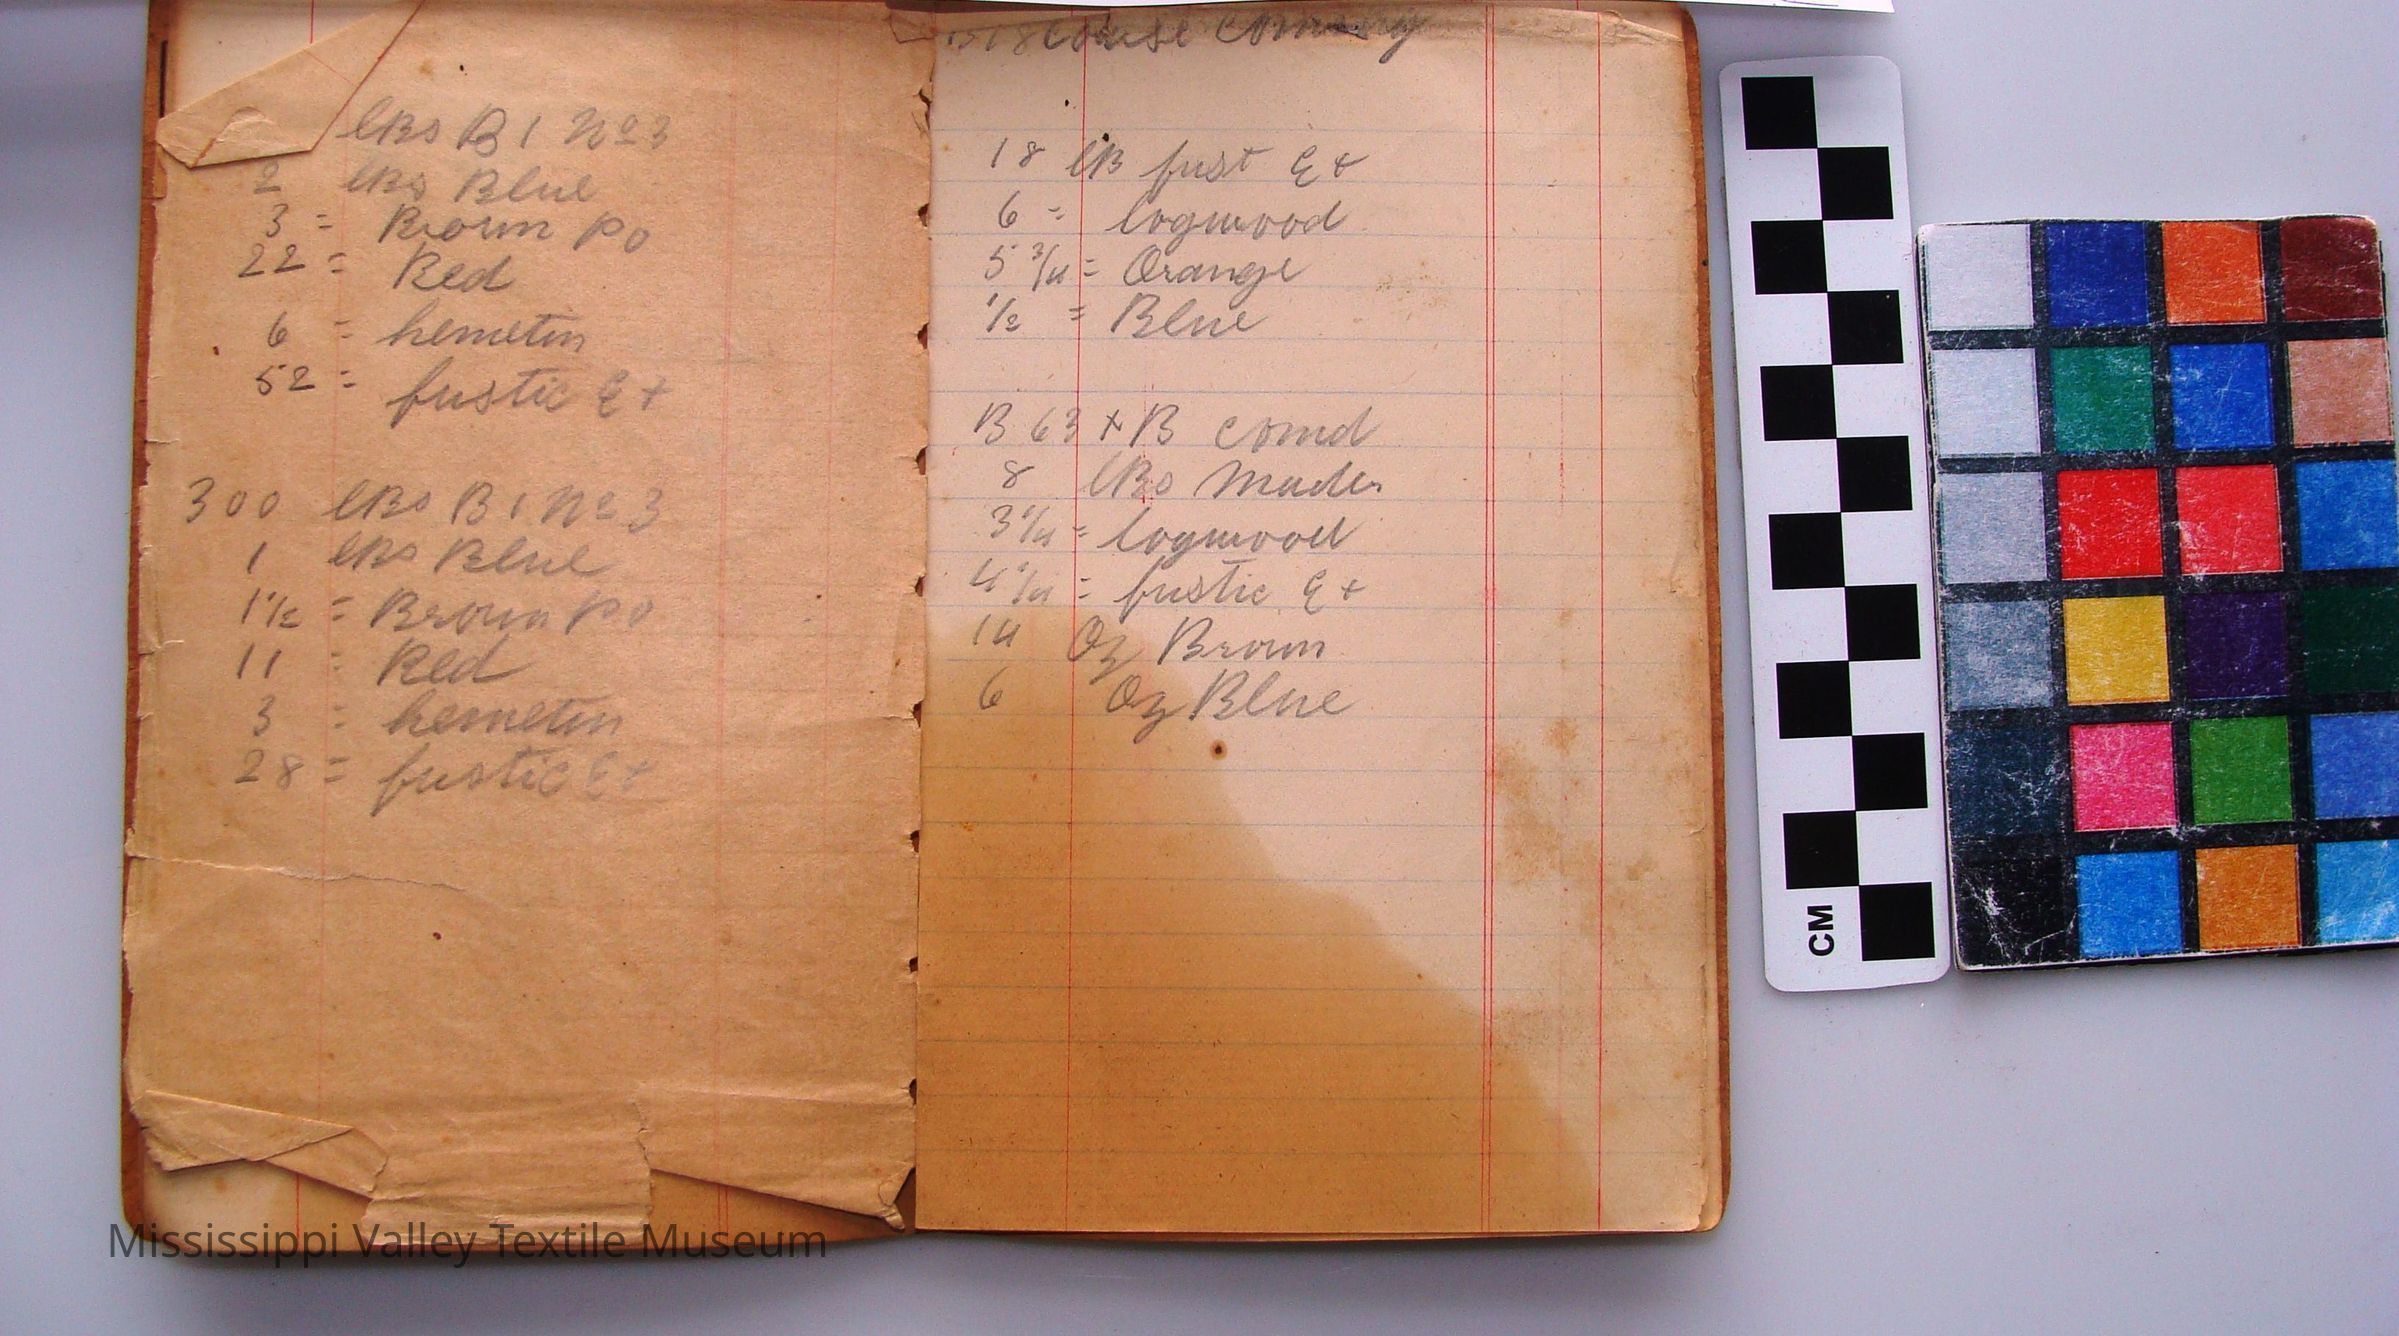 lBs B 1 No 3
2 lBs Blue
3 = Brown Po
22 = Red
6 = hemetin
52 = fustic Ex
300 lBs B 1 No 3
1 lBs Blue
1 1/2 = Brown Po
11 = Red
3 = hemetin
28 = fustic Ex
18 lB fust Ex
6 = logwood
5 3/4 = Orange
1/2 = Blue
B 63 + B comd
8 lBs Mader
3 1/4 = logwood
4 1/4 = fustic Ex
14 Oz Brown
6 Oz Blue
CM
Mississippi Valley Textile Museum